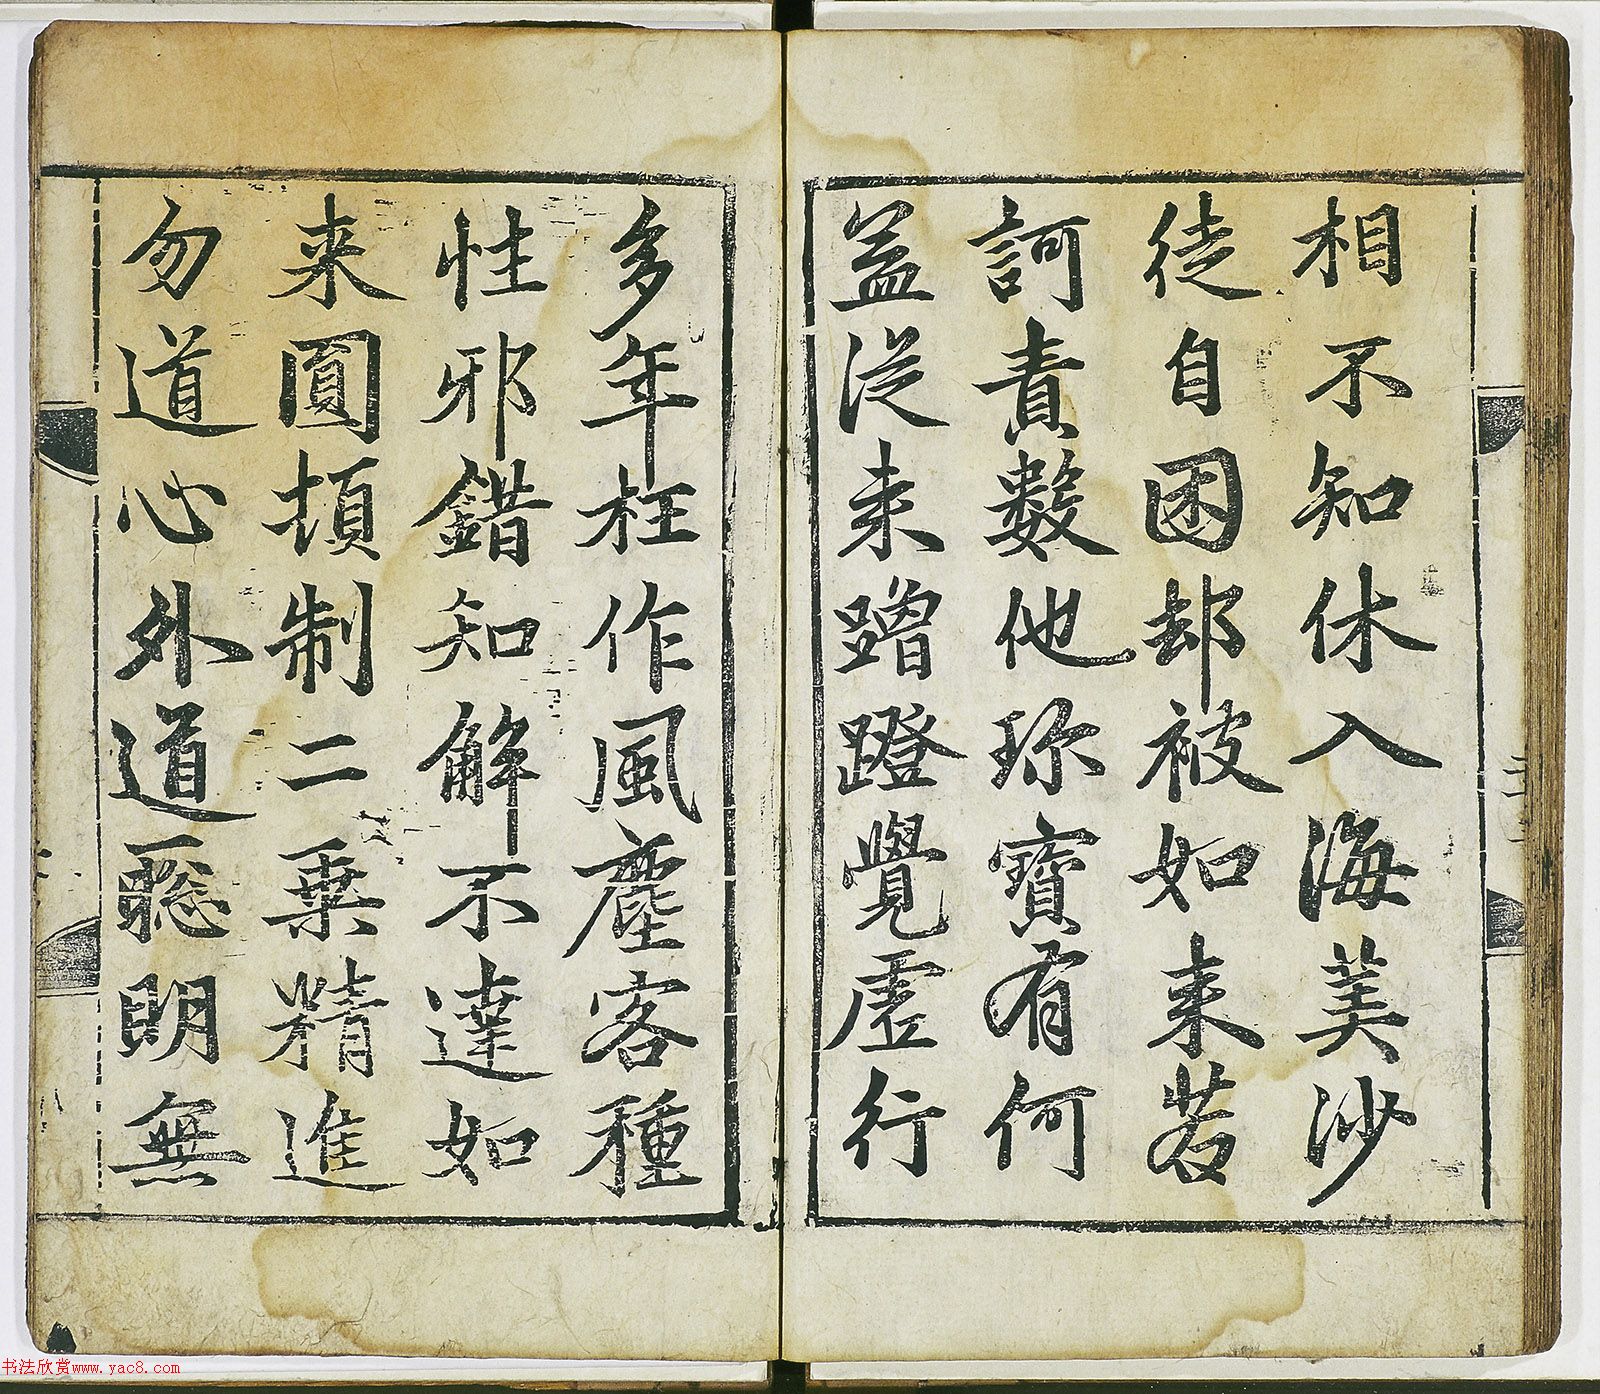 相不知休入海美沙
徒自困却被如来苦
訶責數他珎寶有何
益従来蹭蹬覺虛行
多年枉作風塵客種
性邪錯知解不達如
来圓頓制二乗精進
勿道心外道聡明無
书法欣赏www.yac8.com